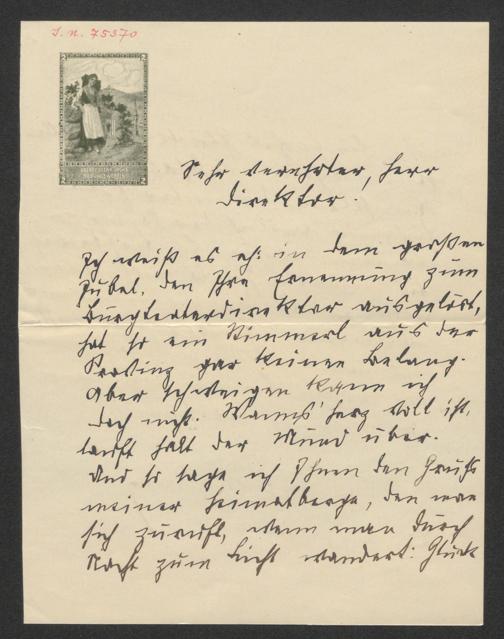 I. N. 75370
Sehr verehrter, Herr
Direktor.
Ich weiß es eh: in dem großen
Jubel, den Ihre Ernennung zum
Burgteaterdirektor ausgelöst,
hat so ein Stimmerl aus der
Provinz gar keinen Belang.
Aber schweigen kann ich
doch nicht. Wanns Herz voll ist,
lauft halt der Mund über.
Und so sage ich Ihnen den Gruß
meiner Heimatberge, den man
sich zuruft, wenn man durch
Nacht zum Licht wandert: Glück